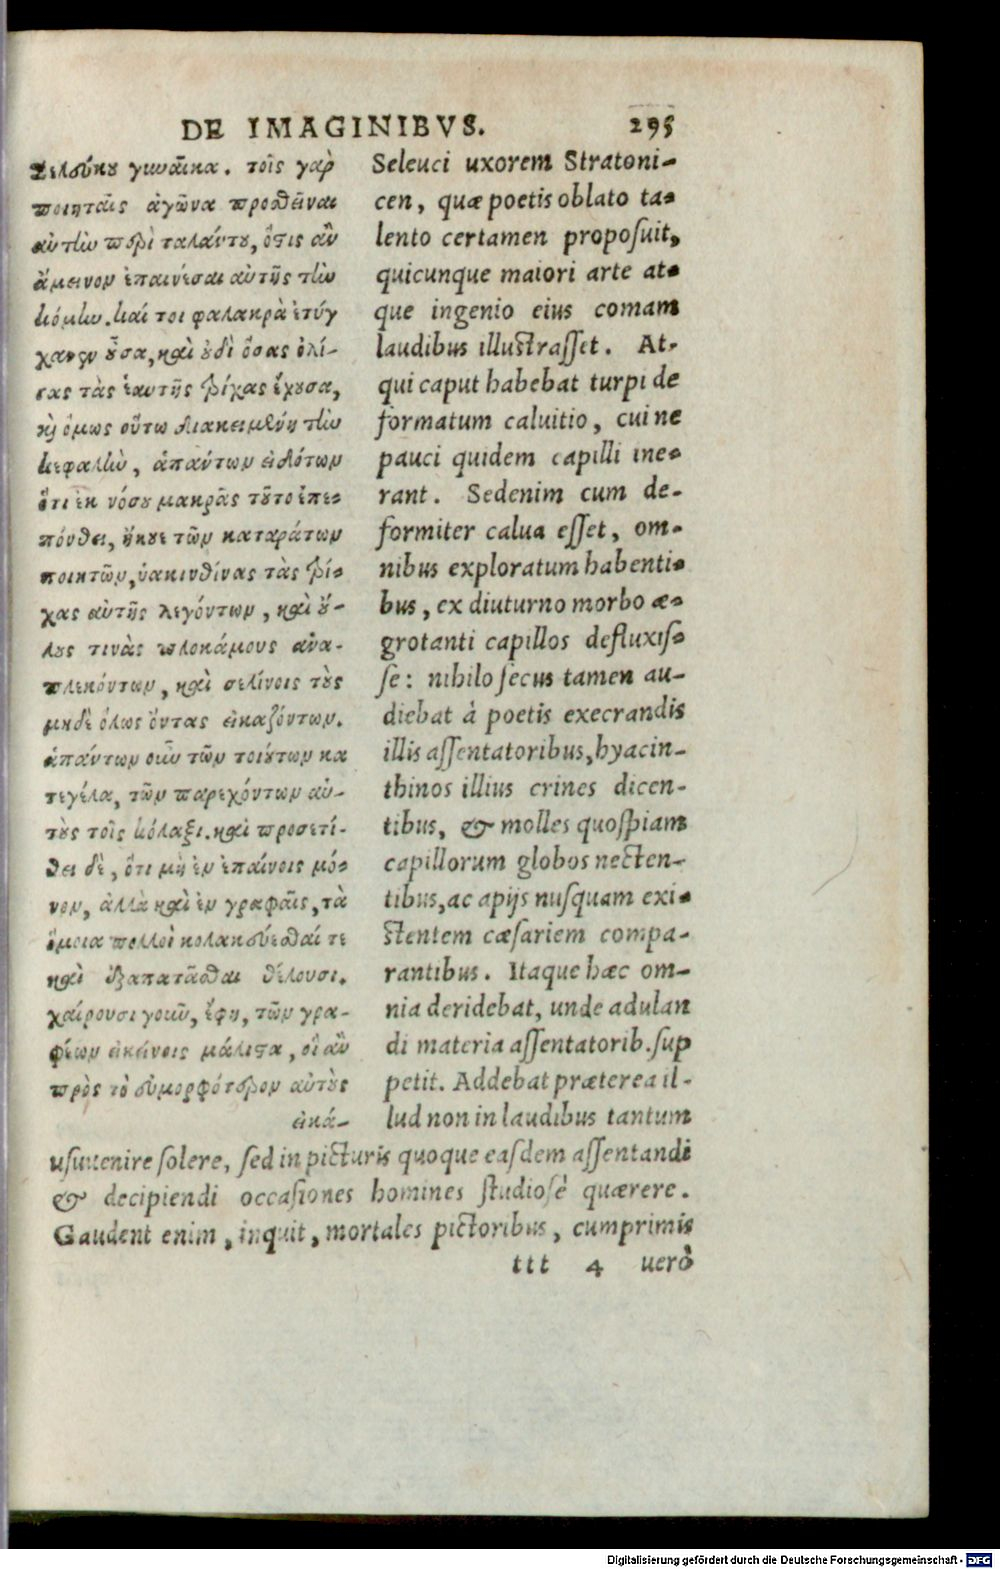 DE IMAGINIBVS. 295
Σελεύκου γυναῖκα. τοῖς γὰρ
ποιηταῖς ἀγῶνα προσθεῖναι
αὐτὴν περὶ ταλάντου, ὅστις ἂν
ἄμεινον ἐπαινέσαι αὐτῆς τὴν
κόμην. καί τοι φαλακρὰ ἐτύγ
χανεν οὖσα, καὶ οὐδὲ ὅσας ὀλί-
γας τὰς ἑαυτῆς τρίχας ἔχουσα,
καὶ ὅμως οὕτω διακειμένη τὴν
κεφαλὴν, ἁπάντων εἰδότων
ὅτι ἐκ νόσου μακρᾶς τοῦτο ἐπε-
πόνθει, ἤκουε τῶν καταράτων
ποιητῶν, ὑακινθίνας τὰς τρί-
χας αὐτῆς λεγόντων, καὶ οὔ-
λους τινὰς πλοκάμους ἀνα-
πλεκόντων, καὶ σελίνοις τοὺς
μηδὲ ὅλως ὄντας εἰκαζόντων.
ἁπάντων οὖν τῶν τοιούτων κα
τεγέλα, τῶν παρεχόντων αὑ-
τοὺς τοῖς κόλαξι. καὶ προσετί-
θει δὲ, ὅτι μὴ ἐν ἐπαίνοις μό-
νον, ἀλλὰ καὶ ἐν γραφαῖς, τὰ
ὅμοια πολλοὶ κολακεύεσθαί τε
καὶ ἐξαπατᾶσθαι θέλουσι.
χαίρουσι γοῦν, ἔφη, τῶν γρα-
φέων ἐκείνοις μάλιστα, οἳ ἂν
πρὸς τὸ εὐμορφότερον αὐτοὺς
εἰκά-
Seleuci uxorem Stratoni-
cen, quæ poetis oblato ta-
lento certamen proposuit,
quicunque maiori arte at-
que ingenio eius comam
laudibus illustrasset. At-
qui caput habebat turpi de
formatum caluitio, cui ne
pauci quidem capilli ine-
rant. Sedenim cum de-
formiter calua esset, om-
nibus exploratum habenti-
bus, ex diuturno morbo æ-
grotanti capillos defluxis-
se: nihilo secus tamen au-
diebat à poetis execrandis
illis assentatoribus, hyacin-
thinos illius crines dicen-
tibus, & molles quospiam
capillorum globos necten-
tibus, ac apijs nusquam exi-
stentem cæsariem compa-
rantibus. Itaque hæc om-
nia deridebat, unde adulan
di materia assentatorib. sup
petit. Addebat præterea il-
lud non in laudibus tantum
usuuenire solere, sed in picturis quoque easdem assentandi
& decipiendi occasiones homines studiosè quærere.
Gaudent enim, inquit, mortales pictoribus, cumprimis
ttt 4 uerò
Digitalisierung gefördert durch die Deutsche Forschungsgemeinschaft - DFG